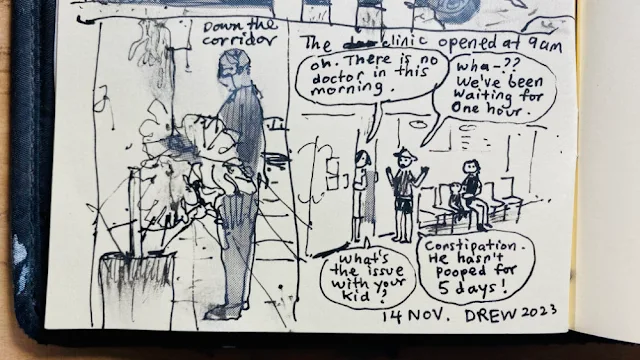 Down the
corridor
The clinic opened at 9am
oh. There is no
doctor in this
morning.
wha-??
We've been
waiting for
One hour.
What's
the issue
with your
kid?
Constipation.
He hasn't
pooped for
5 days!
14 NOV. DREW 2023